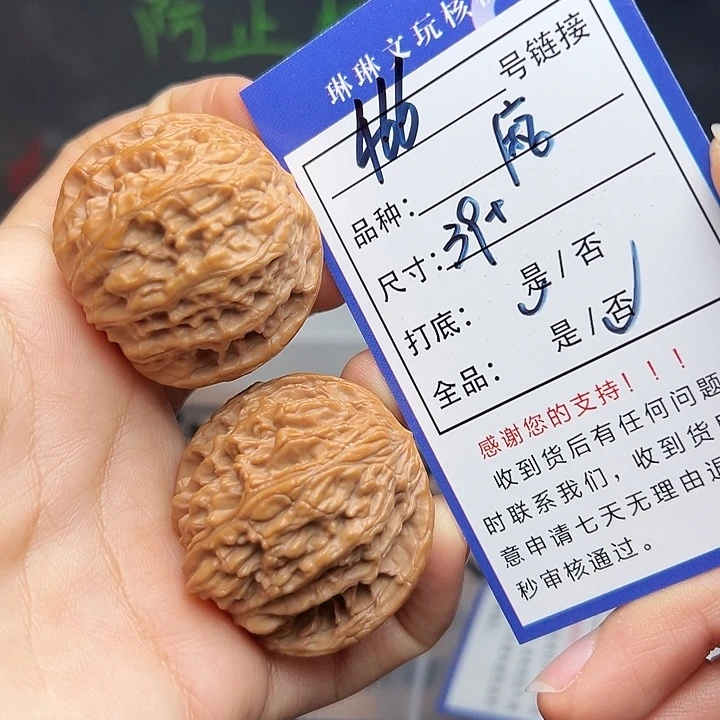 琳琳文玩核桃
466号链接
品种：
尺寸：39+
打底：是/否
全品：是/否
感谢您的支持！！！
收到货后有任何问题
时联系我们，收到货
意申请七天无理由退
秒审核通过。